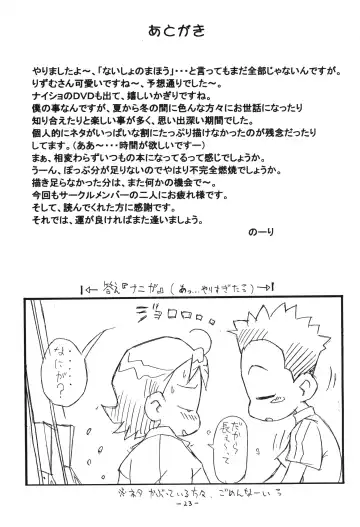 あとがき
やりましたよ～、「ないしょのまほう」・・・と言ってもまだ全部じゃないんですが。
りずむさん可愛いですね～、予想通りでした～。
ナイショのDVDも出て、嬉しいかぎりですね。
僕の事なんですが、夏から冬の間に色んな方々にお世話になったり
知り合えたりと楽しい事が多く、思い出深い期間でした。
個人的にネタがいっぱいな割にたっぷり描けなかったのが残念だったり
してます。（ああ～・・・時間が欲しいです－）
まぁ、相変わらずいつもの本になってるって感じでしょうか。
うーん、ぽっぷ分が足りないのでやはり不完全燃焼でしょうか。
描き足らなかった分は、また何かの機会で～。
今回もサークルメンバーの二人にお疲れ様です。
そして、読んでくれた方に感謝です。
それでは、運が良ければまた逢いましょう。
のーり
答え『ナニが』（あっ…やりすぎたる）
ジョロロ…
なにが？
だから長ぇーって
※ネタ かじっている方々、ごめんなーいろ
-23-